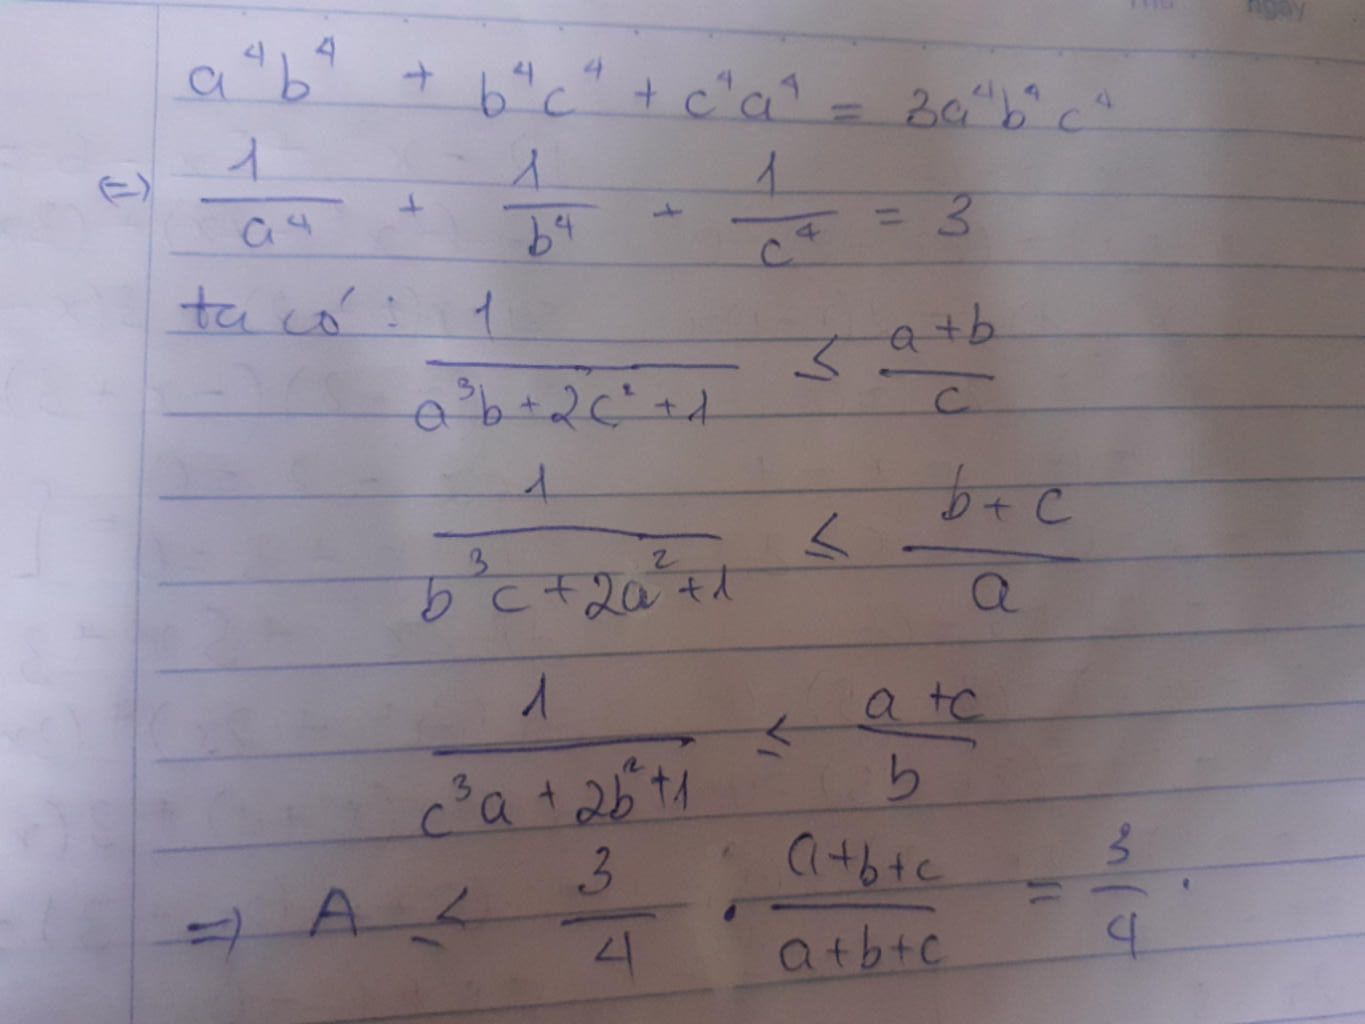 Thứ ngày
a⁴b⁴ + b⁴c⁴ + c⁴a⁴ = 3a⁴b⁴c⁴
(=) 1/a⁴ + 1/b⁴ + 1/c⁴ = 3
ta có: 1/(a³b + 2c² + 1) ≤ (a+b)/c
1/(b³c + 2a² + 1) ≤ (b+c)/a
1/(c³a + 2b² + 1) ≤ (a+c)/b
=) A ≤ 3/4 . (a+b+c)/(a+b+c) = 3/4 .